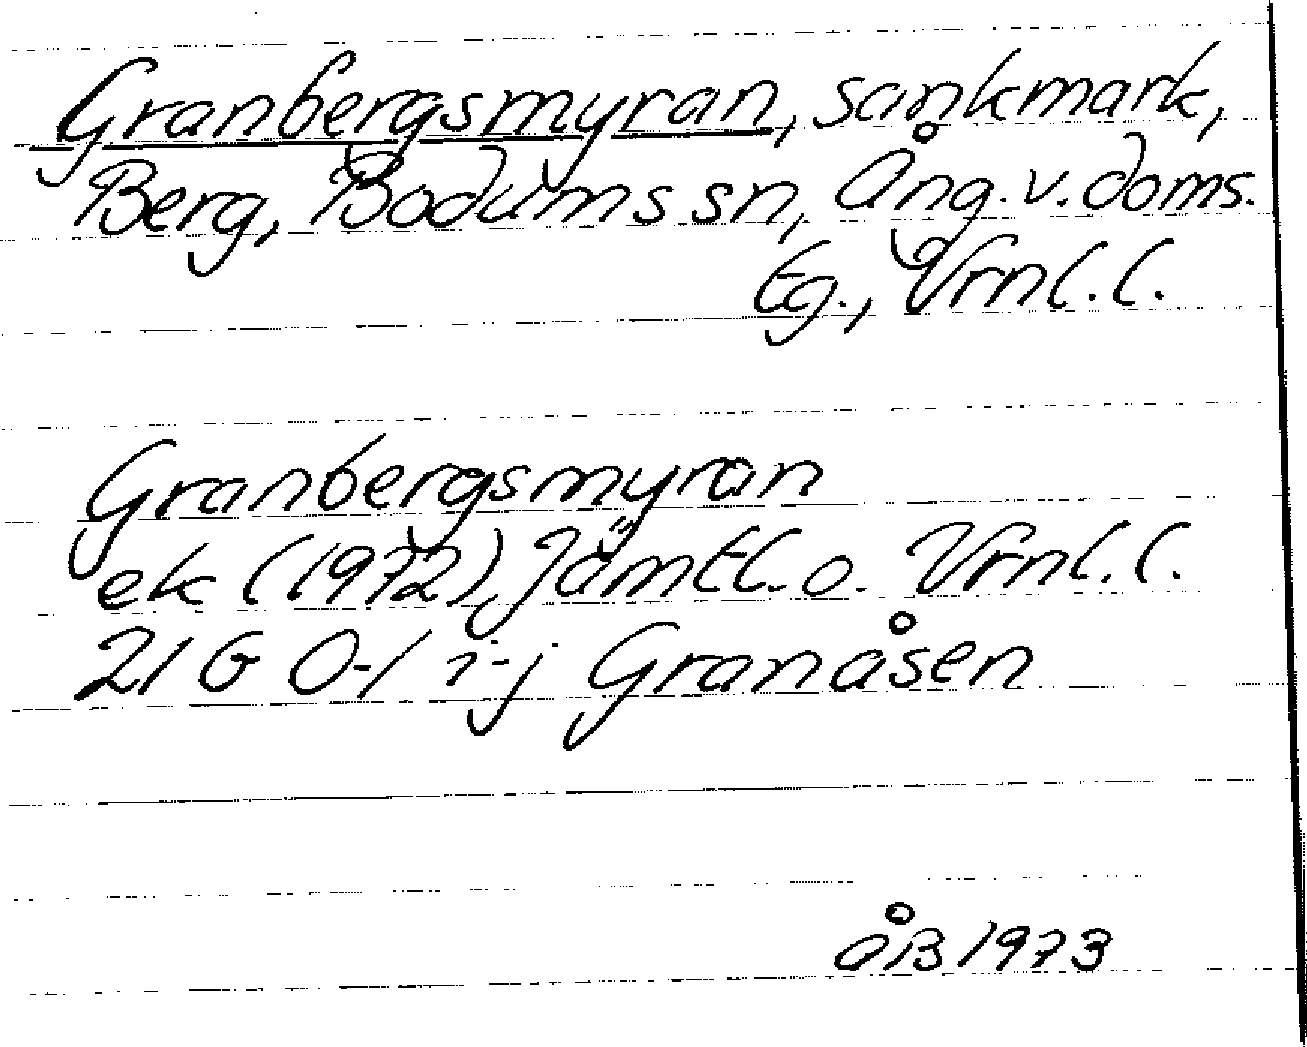 Granbergsmyran, sankmark,
Berg, Bodums sn, Ång. v. doms.
tg., Vrnl. l.
Granbergsmyran
ek (1972), Jämtl. o. Vrnl. l.
21 G 0-1 i-j Granåsen
ÅB 1973